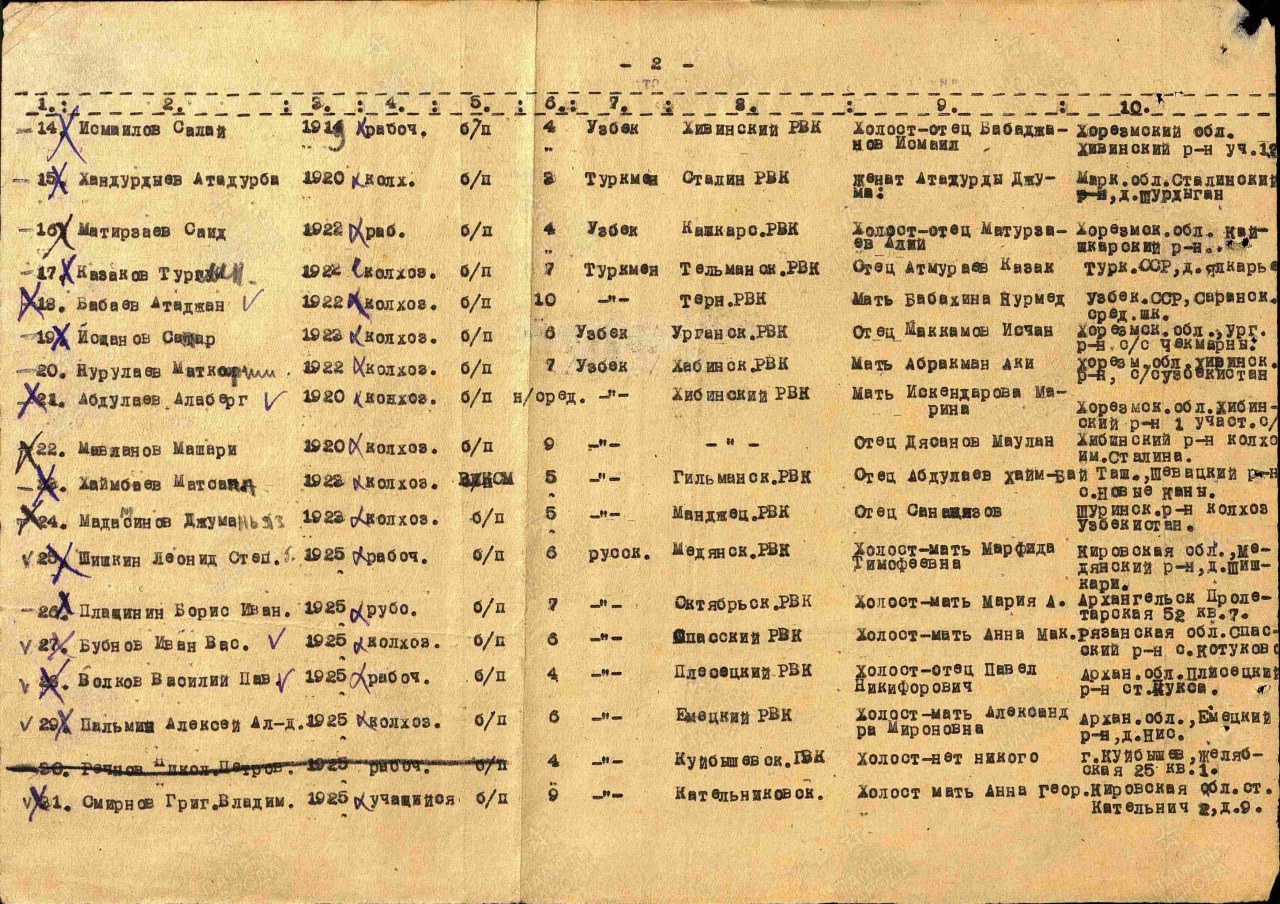 - 2 -
1. : 2. : 3. : 4. : 5. : 6. : 7. : 8. : 9. : 10.
14. Исмаилов Салай 1919 рабоч. б/п 4 Узбек Хивинский РВК Холост-отец Бабаджа- Хорезмский обл.
нов Исмаил Хивинский р-н уч.12
15. Хандурдыев Атадурба 1920 колх. б/п 3 Туркмен Сталин РВК женат Атадурды Джу- Марк.обл.Сталинский
ма: р-н,д.Шурдыган
16. Матирзаев Саид 1922 раб. б/п 4 Узбек Кашкарс.РВК Холост-отец Матурза- Хорезмск.обл. Кай-
ев Алий шкарский р-н.
17. Казаков 1922 колхоз. б/п 7 Туркмен Тельманск.РВК Отец Атмураев Казак Турк.ССР,д.
18. Бабаев Атаджан 1922 колхоз. б/п 10 -"- Терн.РВК Мать Бабахина Нурмед Узбек.ССР,Саранск.
сред.шк.
19. 1923 колхоз. б/п 6 Узбек Урганск.РВК Отец Маккамов Исчан Хорезмск.обл.,Ург.
р-н с/с Чекмарны.
20. Нурулаев 1922 колхоз. б/п 7 Узбек Хабинск.РВК Мать Абракман Аки Хорезм.обл.Хивинск.
р-н, с/сузбекистан
21. Абдулаев Алаберг 1920 конхоз. б/п н/сред. -"- Хибинский РВК Мать Искендарова Ма-
рина Хорезмск.обл.Хибин-
ский р-н 1 участ.с/
22. Мавланов Машари 1920 колхоз. б/п 9 -"- - " - Отец Дясанов Маулан Хибинский р-н колхо
им.Сталина.
23. Хаймбаев 1923 колхоз. ВЛКСМ 5 -"- Гильманск.РВК Отец Абдулаев Хайм-Бай Таш.,Шевацкий р-н
с.Новые Каны.
24. Джума 1923 колхоз. б/п 5 -"- Манджец.РВК Отец Шуринск.р-н колхоз
Узбекистан.
25. Шишкин Леонид Степ. 1925 рабоч. б/п 6 русск. Медянск.РВК Холост-мать Марфида Кировская обл.,Ме-
Тимофеевна дянский р-н,д.Шиш-
кари.
26. Плащинин Борис Иван. 1925 рубо. б/п 7 -"- Октябрьск.РВК Холост-мать Мария А. Архангельск Проле-
тарская 52 кв.7.
27. Бубнов Иван Вас. 1925 колхоз. б/п 6 -"- Спасский РВК Холост-мать Анна Мак.рязанская обл.Спас-
ский р-н с.Котуково
28. Волков Василий Пав. 1925 рабоч. б/п 4 -"- Плесецкий РВК Холост-отец Павел Архан.обл.Плисецкий
Никифорович р-н ст.Пукса.
29. Пальмин Алексей Ал-д. 1925 колхоз. б/п 6 -"- Емецкий РВК Холост-мать Александ Архан.обл.,Емецкий
ра Мироновна р-н,д.Нис.
30. Речнов Никол.Петров. 1925 рабоч. б/п 4 -"- Куйбышевск.РВК Холост-нет никого г.Куйбышев,желяб-
ская 25 кв.1.
31. Смирнов Григ.Владим. 1925 учащийся б/п 9 -"- Кательниковск. Холост мать Анна Геор.Кировская обл.ст.
Кательнич 2,д.9.